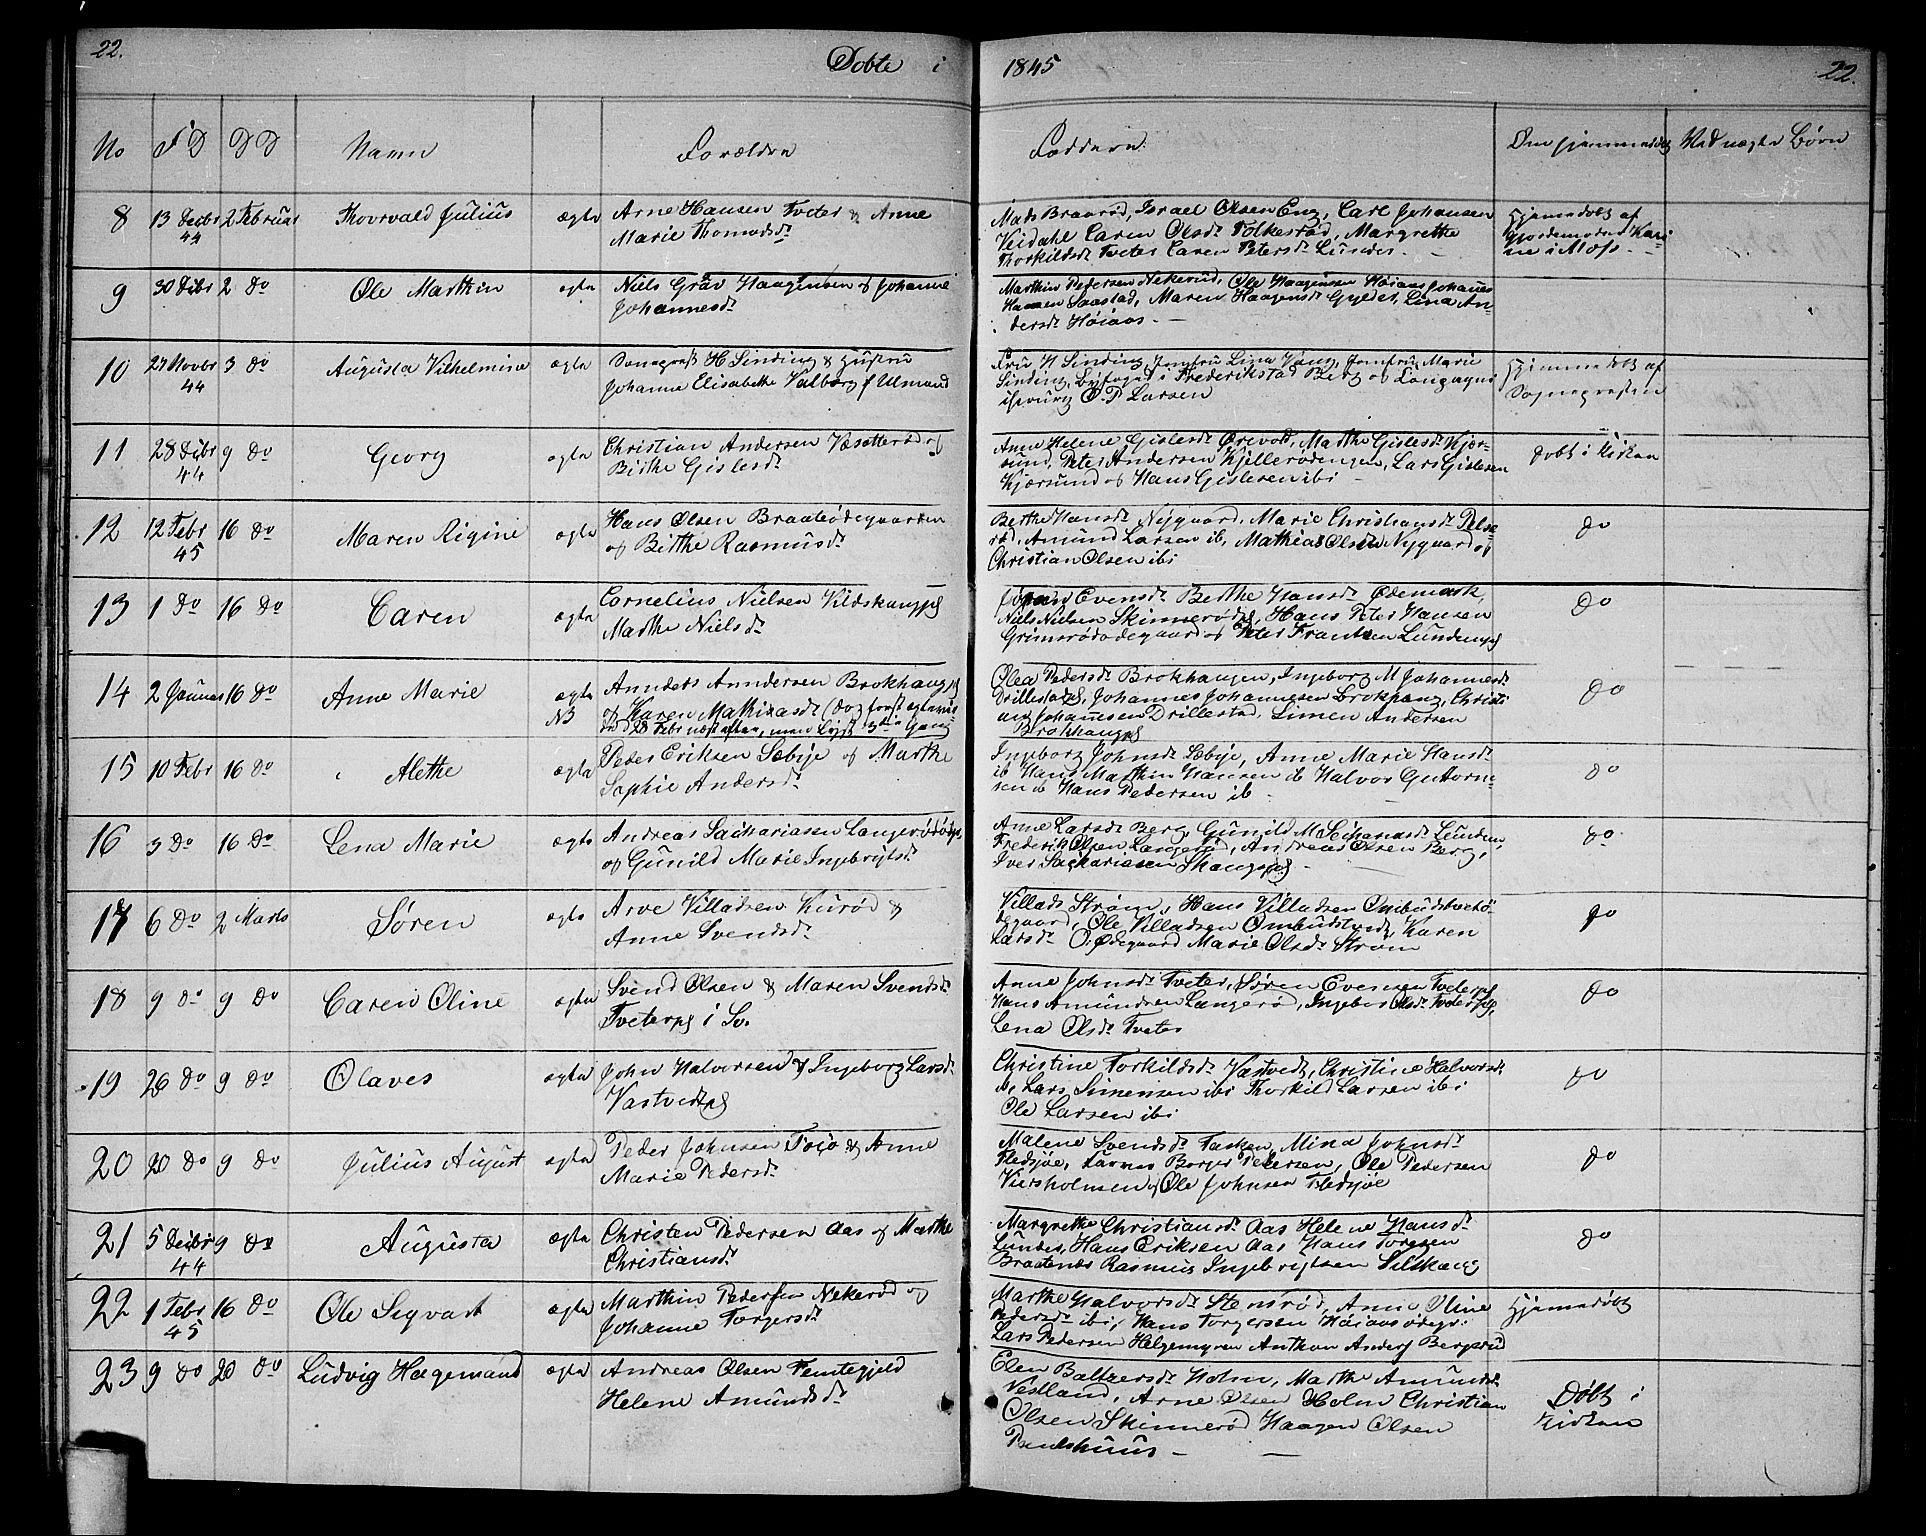 22.
Døbte i
1845
22.
No
F D
D D
Navn
Forældre
Faddere
Om hjemmedøbt
Ved uægte Børn
8
13 Decbr
44
2 Februar
Thorvald Julius
ægte
Arne Hansen Tveter & Anne
Marie Thomasd.
Mads Braarød, Israel Olsen Eng, Carl Johansen
Veidahl Caren Olsd. Folkestad, Margrethe
Thorkildsd. Tveter Caren Petersd. Lundes.
Hjemmedøbt af
Gjordemoder Kari-
ne i Moss.
9
30 Debr
2 do
Ole Marthin
ægte
Niels Gräv Haagensen og Johanne
Johannesd.
Marthin Pedersen Nekerud, Ole Haagensen Høiaas Johannes
Hansen Saastad, Maren Haagensd. Gyldet, Lina An-
dersd. Høiaas
10
27 Novbr
44
3 do
Augusta Vilhelmine
ægte
Sognepræst H Sinding & Hustru
Johanne Elisabethe Valborg f Ulmand
Fru H Sinding, Jomfru Lina Vang, Jomfru Marie
Sinding, Byfoged i Frederikstad Berg og
O. P. Larsen
Hjemmedøbt af
Sognepræsten
11
28 Debr
44
9 do
Georg
ægte
Christian Andersen Væsetterød og
Birthe Gislesd.
Anne Helene Gislesd. Ørevold, Marthe Gislesd. Kjær-
sund, Peter Andersen Kjellerødengen, Lars Gislesen
Kjærsund og Hans Gislesen ibi
Døbt i Kirken
12
12 Febr
45
16 do
Maren Rigine
ægte
Hans Olsen Braatødegaarden
og Birthe Rasmusd.
Berthe Hansd. Nygaard, Marie Christiansd. Pelse-
rød, Amund Larsen ib, Mathias Olsen Nygaard og
Christian Olsen ibi
do
13
1 do
16 do
Caren
ægte
Cornelius Nielsen Vildskaugpl
Marthe Nielsd.
Evensd. Berthe Hansd. Ødemark,
Niels Nielsen Skinnerød, Hans Peter Hansen
Grimsrødødegaard og Peter Frantzen Lundengpl
do
14
2 Januar
16 do
Anne Marie
ægte
NB
Annders Anndersen Brokhaugpl
og Karen Mathiasd. (dog først ægtevi
d 20 Febr næstefter, men lyst 3die Gang
Olea Pedersd. Brokhaugen, Ingeborg M Johannesd.
Drillestad, Johannes Johannesen Brokhaug, Christi
an Johannesen Drillestad, Simen Andersen
Brokhaugpl
do
15
10 Febr
16 do
Alethe
ægte
Peder Eriksen Sæbye og Marthe
Sophie Andersd.
Ingeborg Johnsd. Sæbye, Anne Marie Hansd.
ib Hans Marthin Hansen ib Halvor Guttorm-
sen ib Hans Pedersen ib
do
16
3 do
16 do
Lena Marie
ægte
Andreas Sachariassen Langerødødegd
og Gunild Marie Ingebrigtsd.
Anne Larsd. Berg, Gunild M Sachariasd. Lunden,
Frederik Olsen Langerød, Andreas Olsen Berg,
Iver Sachariasen Skaugpl
do
17
6 do
2 Marts
Søren
ægte
Arve Villadsen Kurød &
Anne Svendsd.
Villads Strøm, Hans Villadsen Ombudstvetø-
degaard, Ole Villadsen Ombudstvedt, Karen
Larsd. O. Ødegaard Marie Olsd. Strøm
do
18
9 do
9 do
Caren Oline
ægte
Svend Olsen & Maren Svendsd.
Tveterpl i Sv.
Anne Johnsd. Tveter, Søren Evensen Tveterpl
Hans Amundsen Langerød, Ingebor Olsd. Tveterpl,
Lena Olsd. Tveter
do
19
26 do
9 do
Olaves
ægte
John Halvorsen & Ingeborg Larsd.
Vastvedtpl
Christine Torkildsd. Vastvedt, Christine Halvorsd.
ib, Lars Simensen ibi Thorkild Larsen ibi
Ole Larsen ibi
do
20
20 do
9 do
Julius August
ægte
Peder Johnsen Tosjø & Anne
Marie Pedersd.
Malene Svendsd. Tasken, Mina Johnsd.
Fledsjøe, Borger Petersen, Ole Pedersen
Viersholmen og Ole Johnsen Fledsjøe
do
21
5 Decbr
44
9 do
Augusta
ægte
Christen Pedersen Aas og Marthe
Christiansd.
Margrethe Christiansd. Aas Helene Hansd.
Lundes, Hans Eriksen Aas Hans Toresen
Braatenæs Rasmus Ingebrigtsen Siltkaug
do
22
1 Febr
45
16 do
Ole Sigvart
ægte
Marthin Pedersen Nekerød og
Johanne Torgersd.
Marthe Halvorsd. Stensrød, Anne Oline
Pedersd. ibi, Hans Torgersen Høiaasødegd.
Lars Pedersen Helgemyren Anthon Anders Bergerud
Hjemmedøbt
23
9 do
20 do
Ludvig Hagemand
ægte
Andreas Olsen Femtegjeld
Helene Amundsd.
Elen Baltzersd. Holm, Marthe Amundsd.
Vestland, Arne Olsen Holm Christian
Olsen Skinnerød Haagen Olsen
Døbt i
Kirken